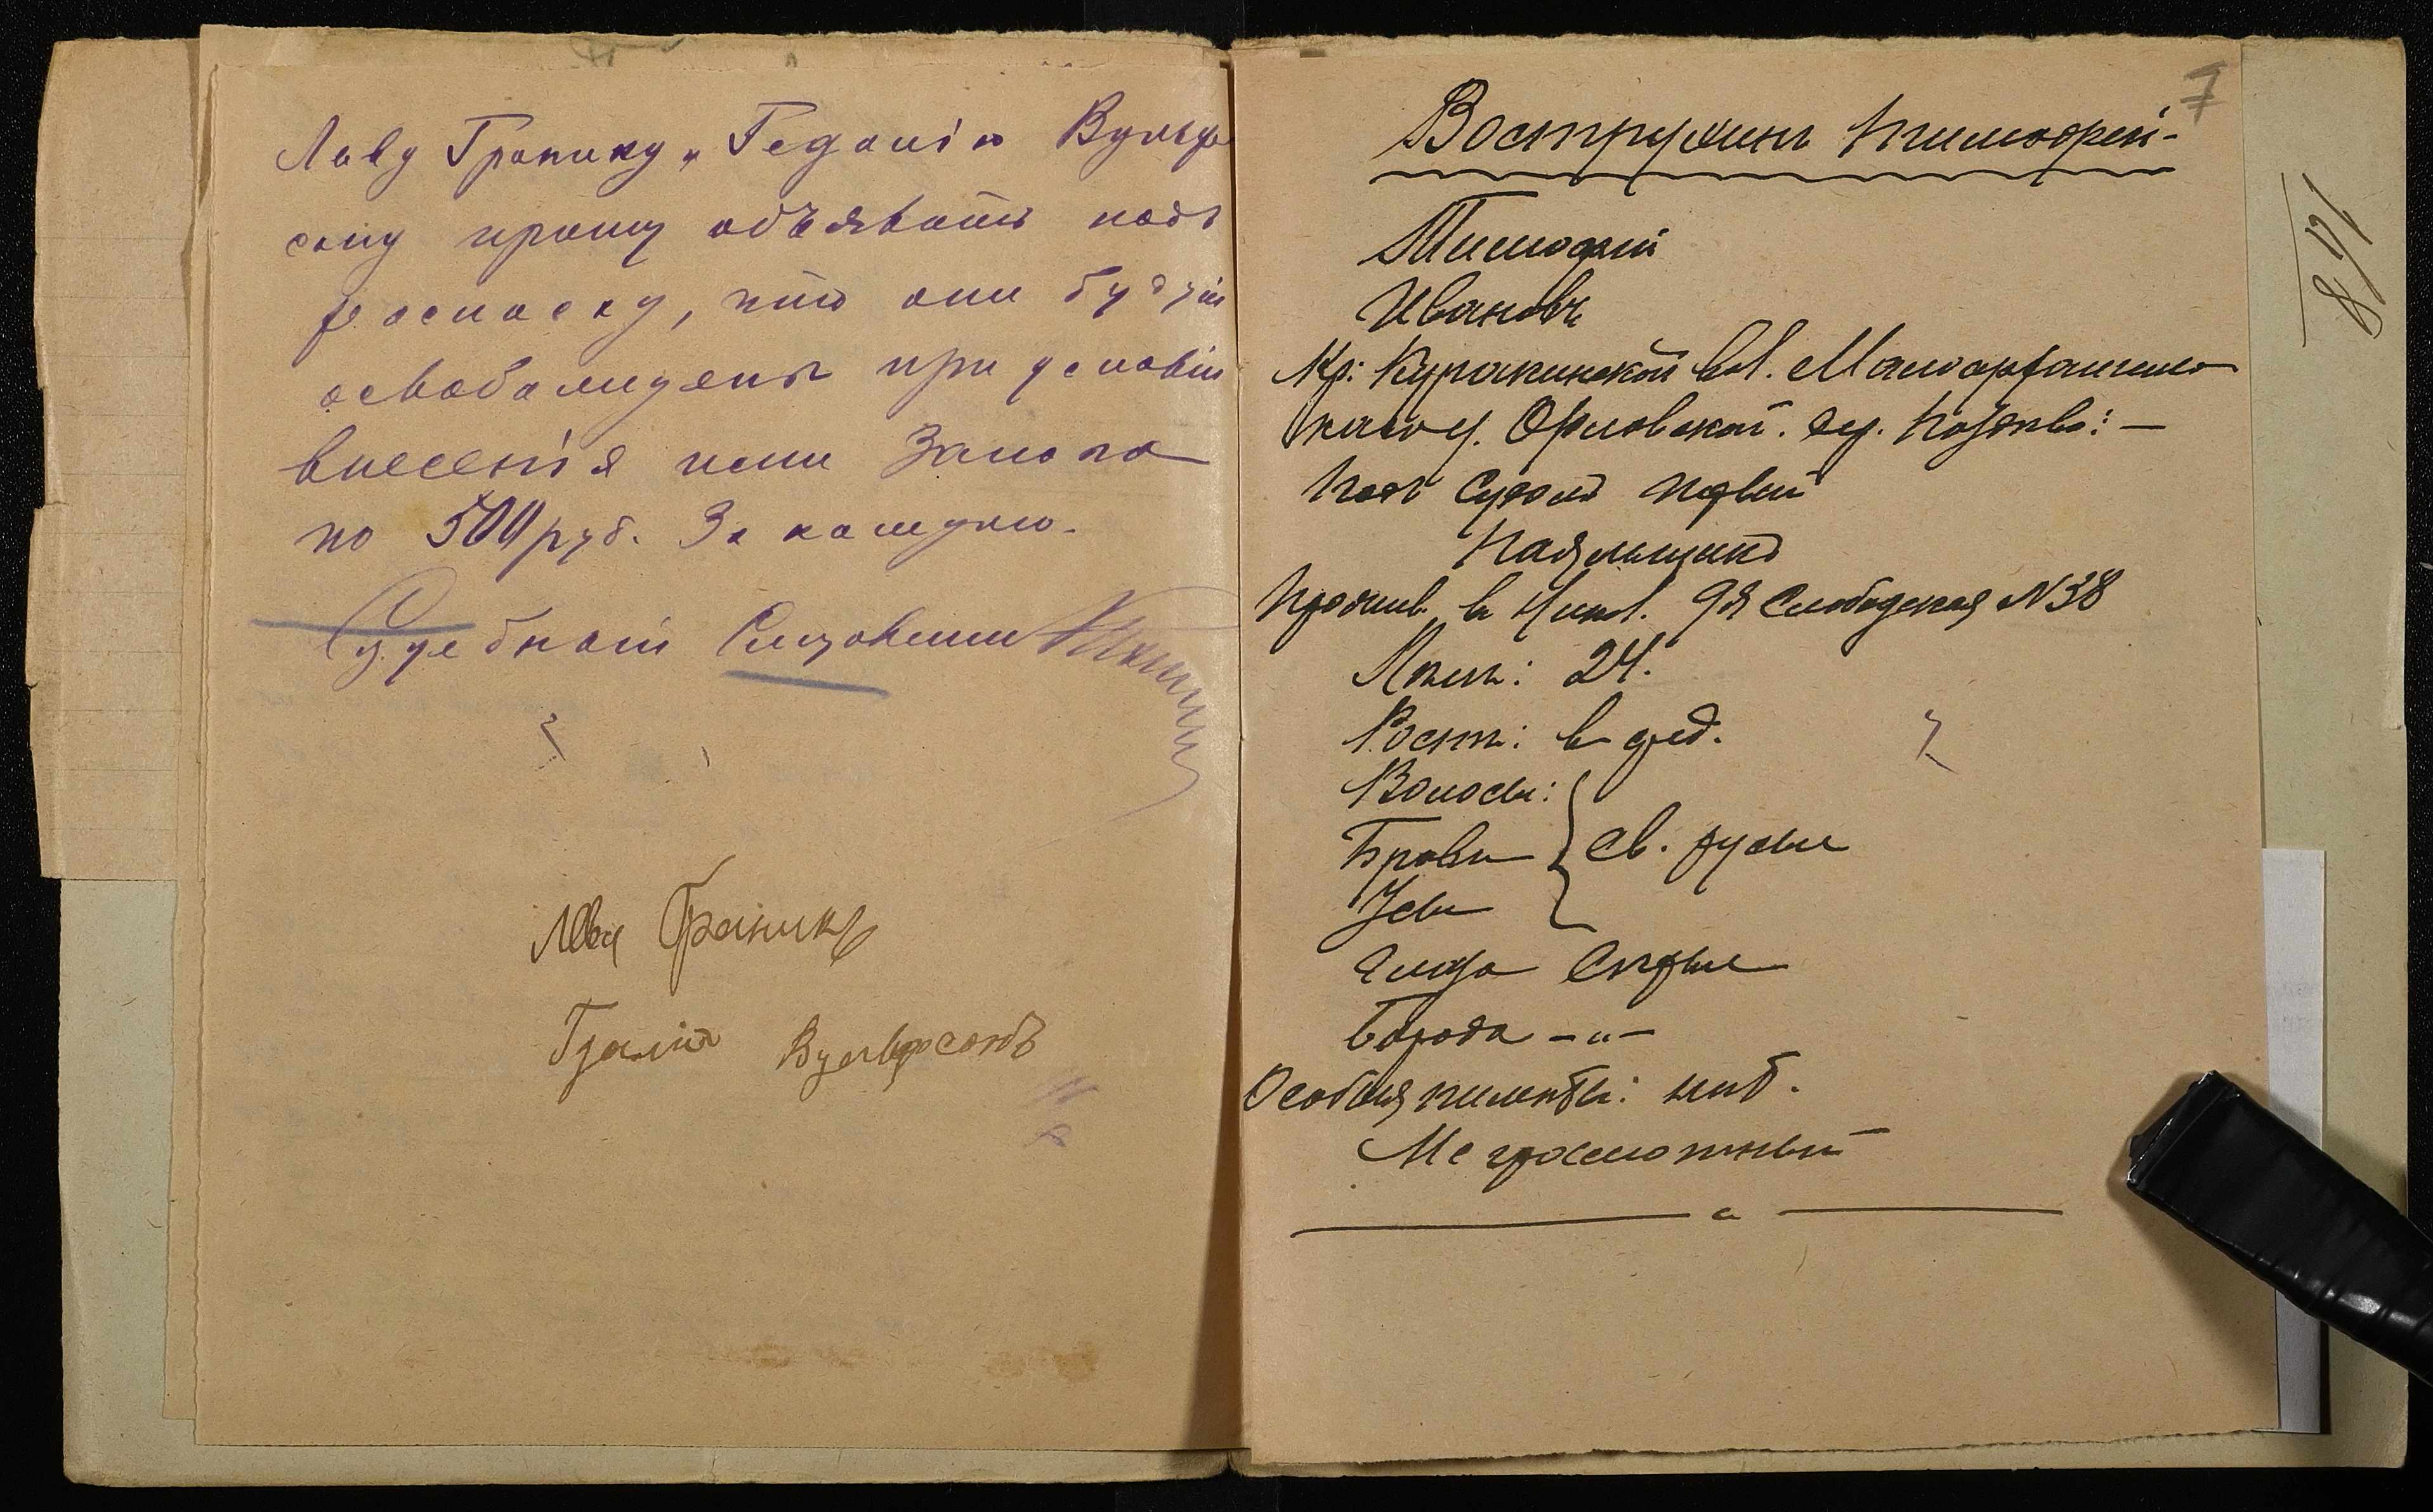 Лейбу Гранику и Гедалію Вульфъ
сону прошу объявить подъ
росписку, что они будутъ
освобождены при условіи
внесенія ими Залога
по 500 руб. За каждаго.
Судебный Слѣдователь
Лейба Граникъ
Гдалія Вульфсонъ
7
Вострухинъ Тимофей-
Тимофей
Ивановъ
Кр: Куракинской вол. Малоархангель
скаго у. Орловской. губ.
Подъ Судомъ
Паяльщикъ
Прожив. въ Никол. 9я Слободская № 38
Лѣтъ: 24.
Ростъ: в сред.
Волосы:
Брови св. русые
Усы
Глаза Сѣрые
Борода -"-
Особыя примѣты: нѣтъ.
Не грамотный